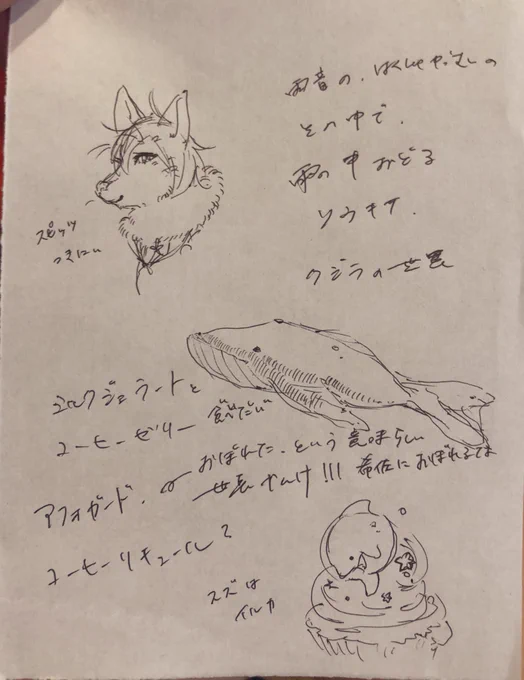 雨音の、はくしゅかっさいの
その中で、
雨の中 おどる
ソウキす、
クジラの世界
スピッツ
つきに
ミルクジェラートと
コーヒーゼリー 食べたい
アフォガード、
おぼれた、という意味らしい
世界やんけ!!! 希佐におぼれるてよ
コーヒーリキュール?
スズは
イルカ